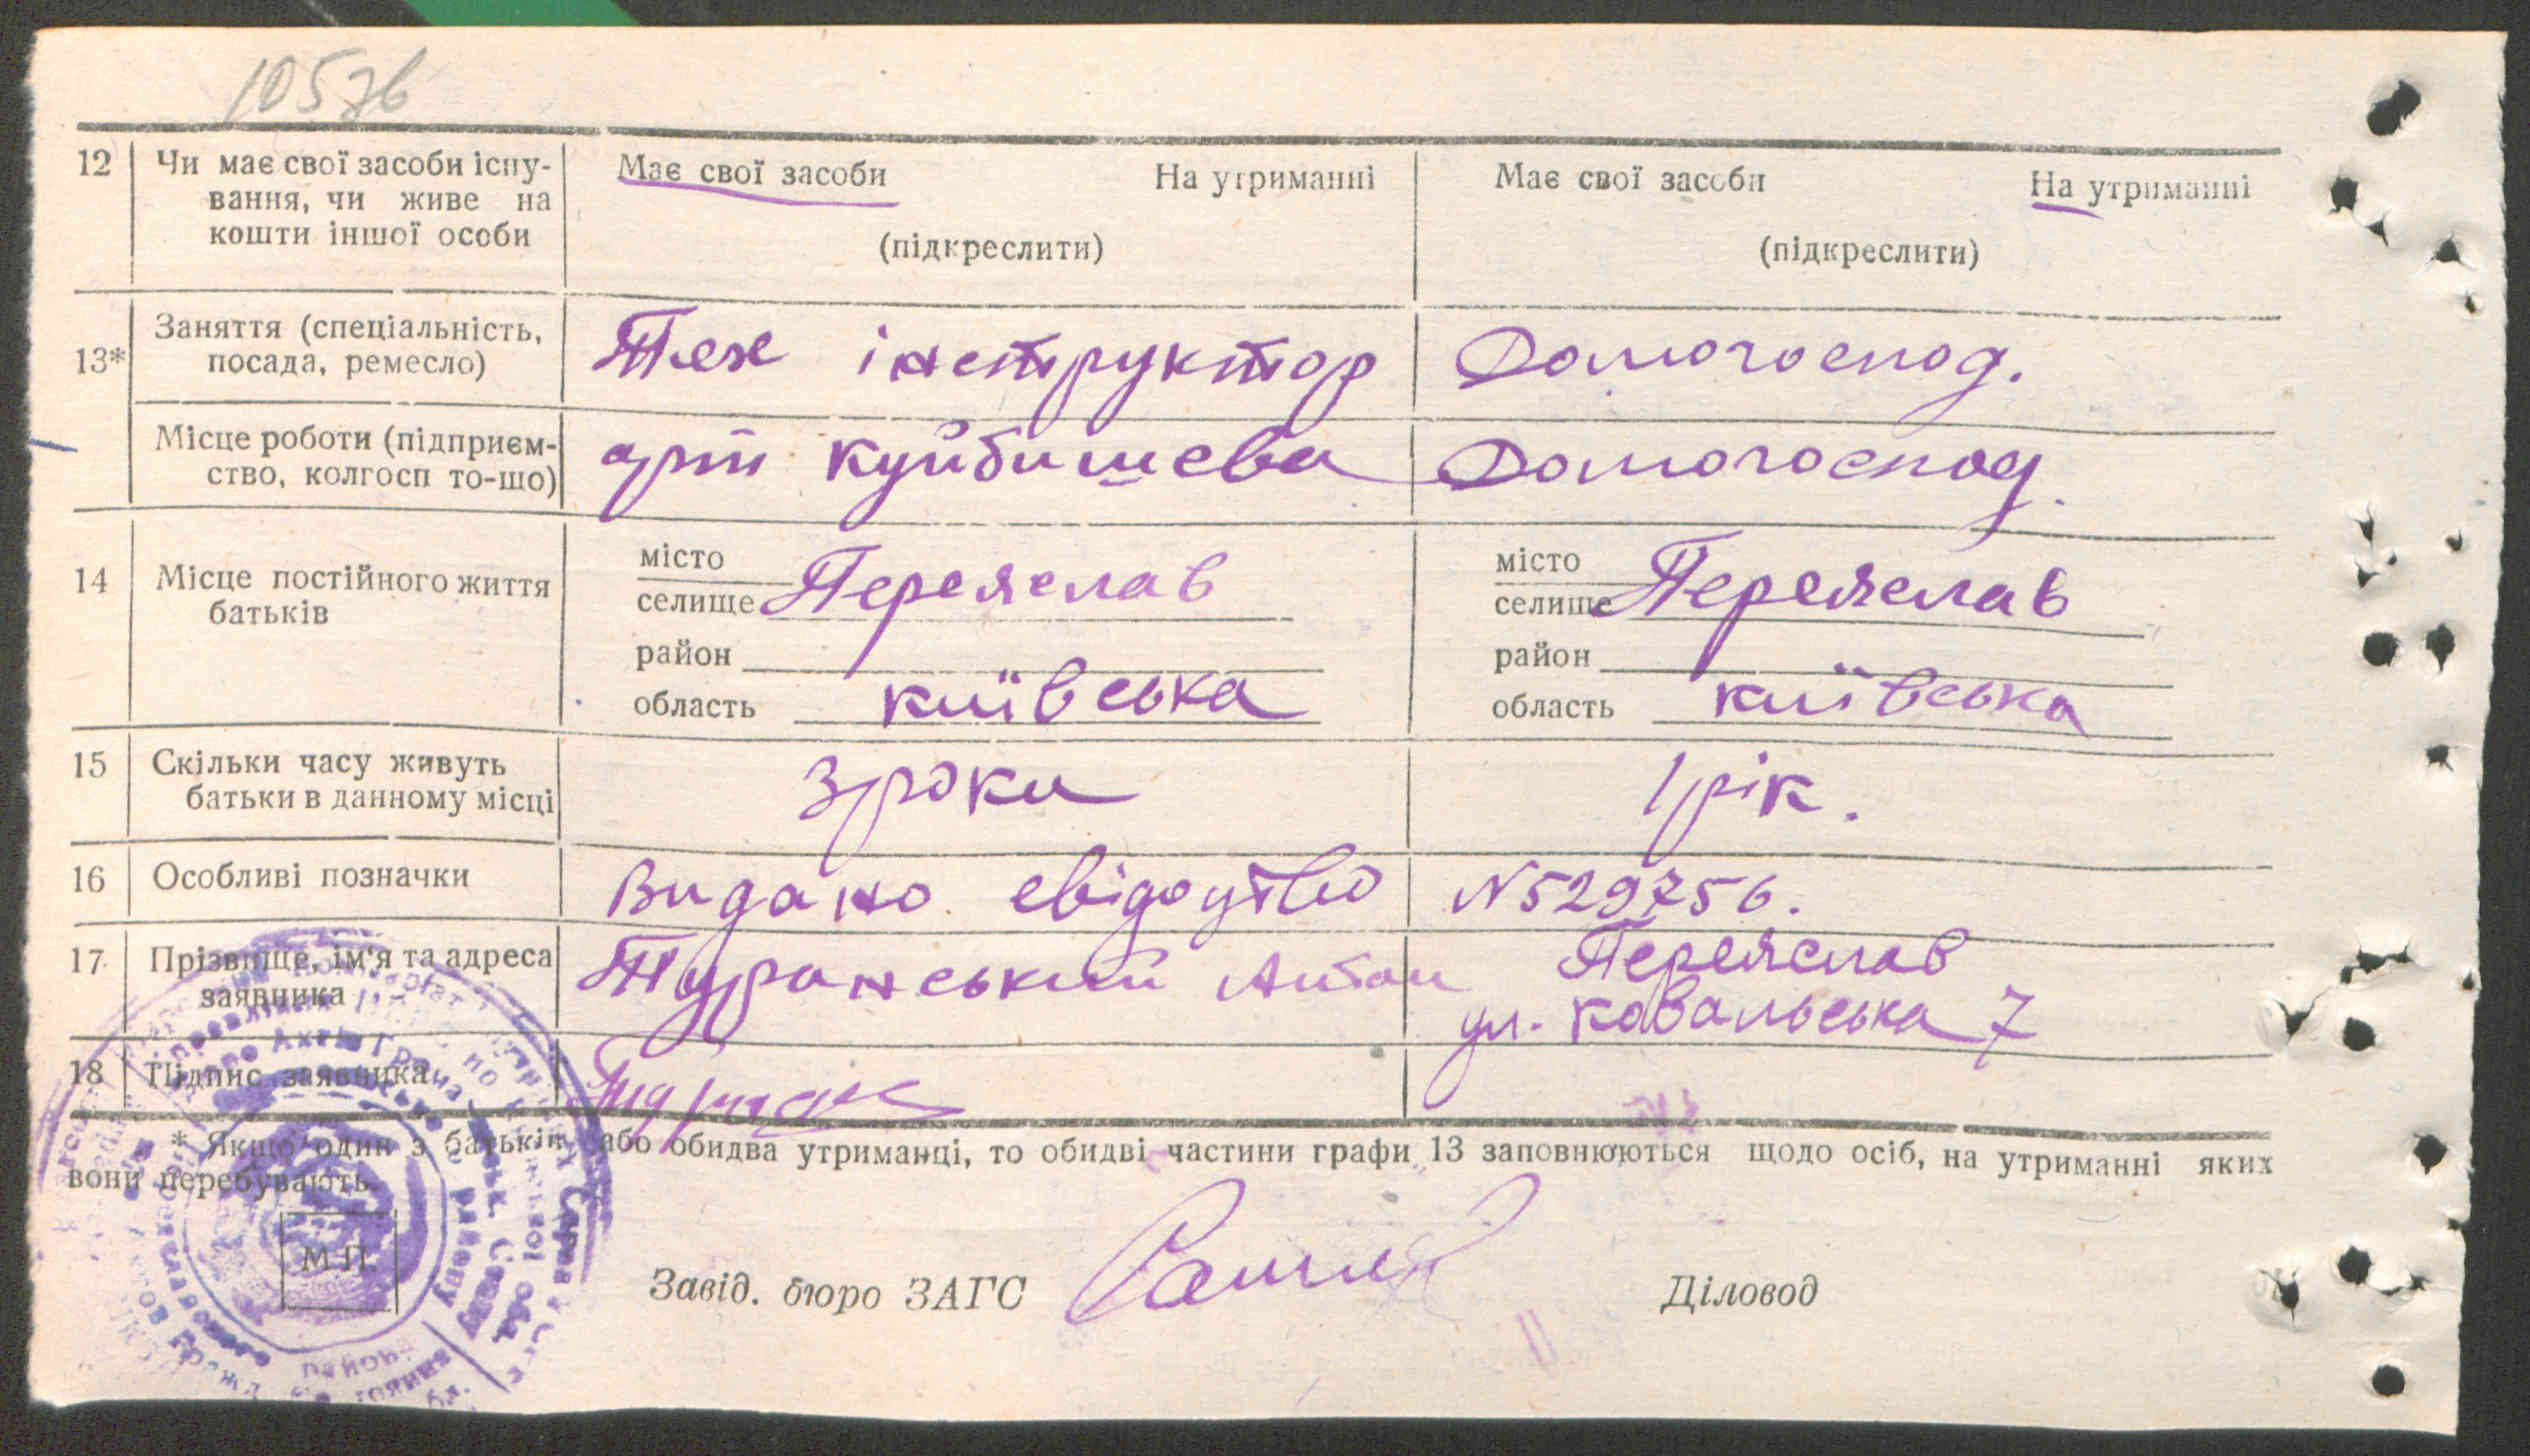 10576
12 Чи має свої засоби існу- Має свої засоби На утриманні Має свої засоби На утриманні
вання, чи живе на
кошти іншої особи (підкреслити) (підкреслити)
Заняття (спеціальність, Тех інструктор Домогоспод.
13* посада, ремесло)
Місце роботи (підприєм- арт куйбишева Домогоспод.
ство, колгосп то-що)
місто місто
14 Місце постійного життя селище Переяслав селище Переяслав
батьків
район район
область київська область київська
15 Скільки часу живуть 3 роки 1 рік.
батьки в данному місці
16 Особливі позначки Видано свідоцтво N 529756.
17 Прізвище, ім'я та адреса Туранський Антон Переяслав
заявника ул. Ковальська 7
18 Підпис заявника
* Якщо один з батьків або обидва утриманці, то обидві частини графи 13 заповнюються щодо осіб, на утриманні яких
вони перебувають.
М.П.
Завід. бюро ЗАГС Діловод